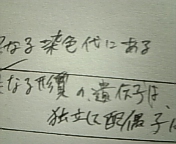 なる染色代にある
なる形質の遺伝子は、
独立に配偶子に